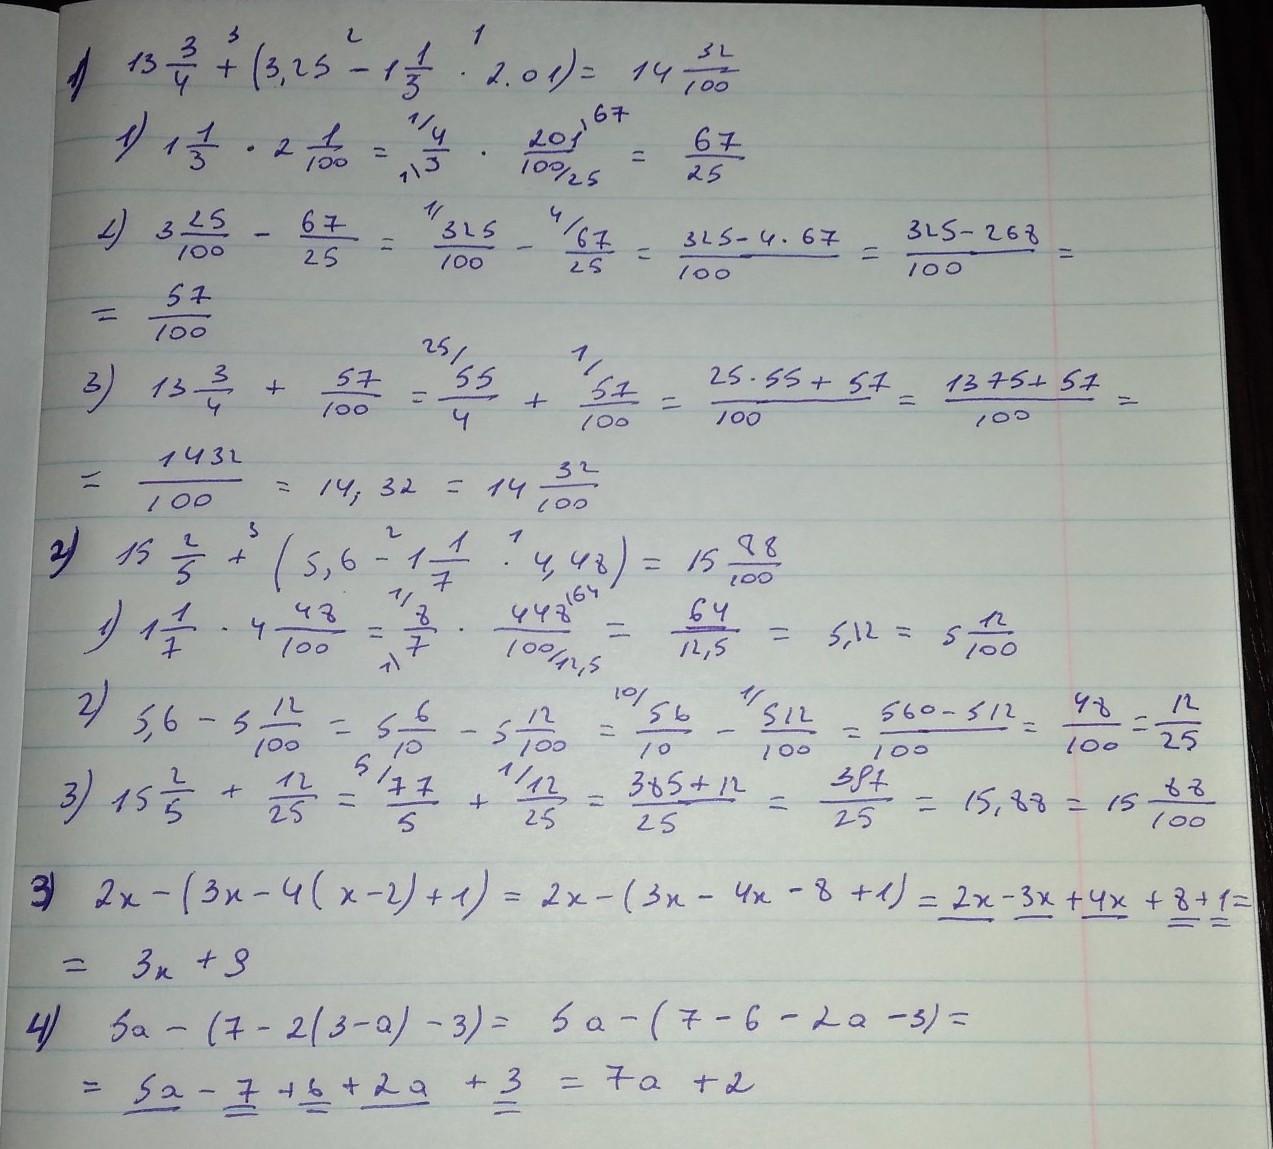 1) 13 3/4 +³ (3,25 −² 1 1/3 ·¹ 2.01) = 14 32/100
1) 1 1/3 · 2 1/100 = ¹/4/3\1 · 201\67/100/25 = 67/25
2) 3 25/100 − 67/25 = ¹/325/100 − ⁴/67/25 = 325−4·67/100 = 325−268/100 =
= 57/100
3) 13 3/4 + 57/100 = ²⁵/55/4 + ¹/57/100 = 25·55+57/100 = 1375+57/100 =
= 1432/100 = 14,32 = 14 32/100
2) 15 2/5 +³ (5,6 −² 1 1/7 ·¹ 4,48) = 15 88/100
1) 1 1/7 · 4 48/100 = ¹/8/7\1 · 448\64/100/12,5 = 64/12,5 = 5,12 = 5 12/100
2) 5,6 − 5 12/100 = 5 6/10 − 5 12/100 = ¹⁰/56/10 − ¹/512/100 = 560−512/100 = 48/100 = 12/25
3) 15 2/5 + 12/25 = ⁵/77/5 + ¹/12/25 = 385+12/25 = 397/25 = 15,88 = 15 88/100
3) 2x − (3x − 4(x−2)+1) = 2x − (3x − 4x − 8 +1) = 2x − 3x + 4x + 8 + 1 =
= 3x + 9
4) 5a − (7 − 2(3−a) − 3) = 5a − (7 − 6 − 2a − 3) =
= 5a − 7 + 6 + 2a + 3 = 7a + 2